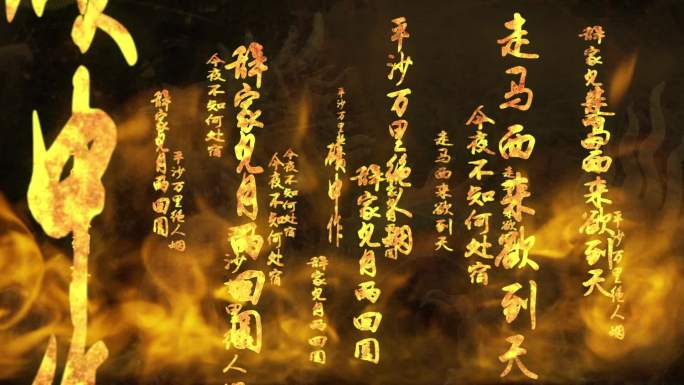 平沙万里绝人烟
辞家见
走马西来欲到天
走马西来欲到天
今夜不知何处宿
走马西来欲到天
平沙万里绝人烟
辞家见月两回圆
平沙万里
碛中作
辞家见月两回圆
今夜不知何处宿
今夜不知何处宿
辞家见月两回圆
沙万里绝人烟
今夜不知何处宿
平沙万里绝人烟
辞家见月两回圆
碛中作